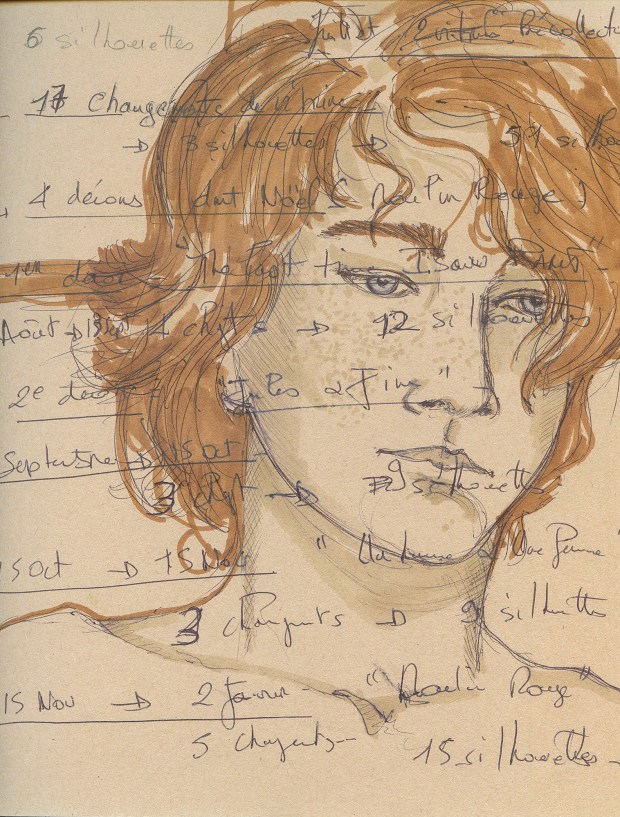 6 silhouettes Juillet 2 vitrines Précollection
- 17 changements de vitrine
→ 3 silhouettes → 51 silhou
4 décors dont Noël ( Moulin Rouge )
1er décor = "The last time I saw Paris"
Août → 15 Sept 4 chgts → 12 silhouettes
2e décor = "Jules & Jim"
Septembre → 15 Oct -
3 chgt → 9 silhouettes
15 Oct → 15 Nov "Un homme & Une femme"
3 changents → 9 silhouettes
15 Nov → 2 Janvier - "Moulin Rouge"
5 changents - 15 silhouettes -